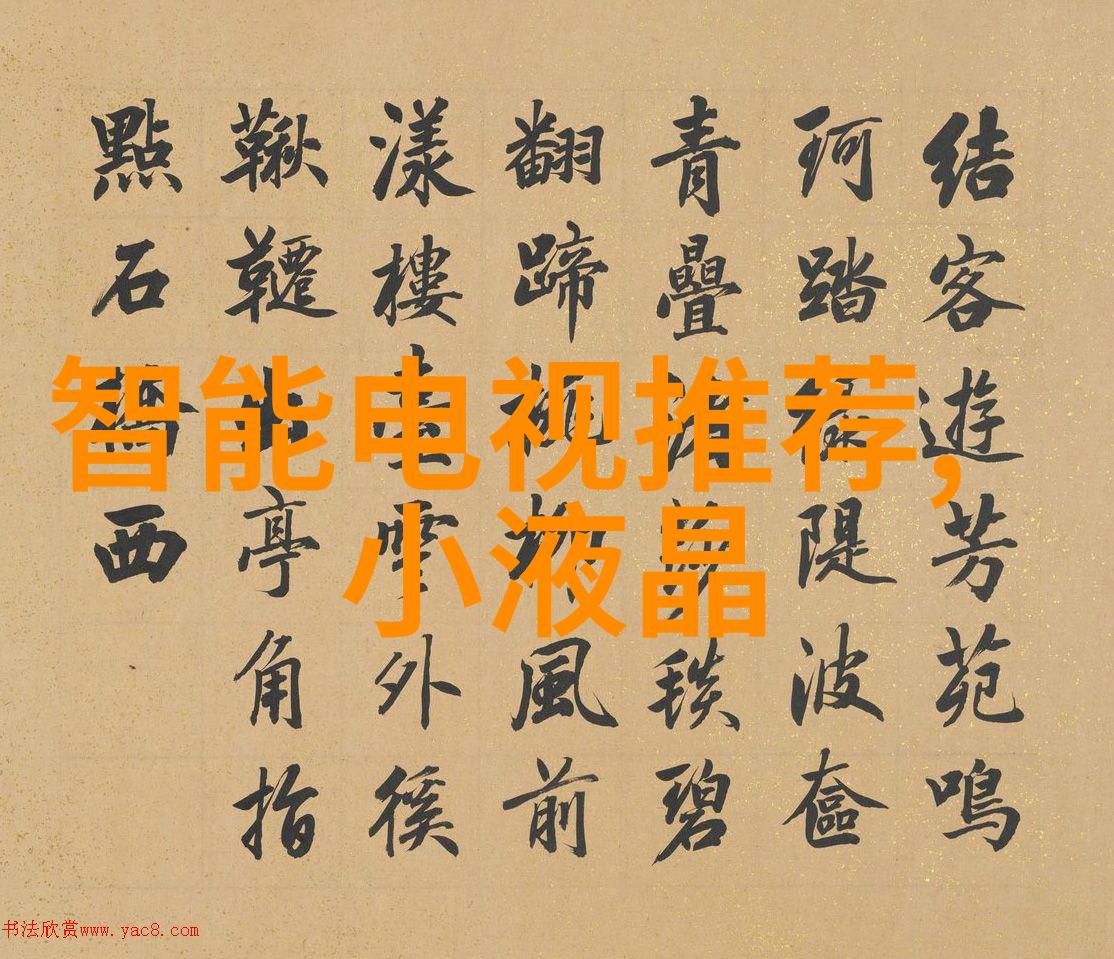 結客遊芳苑鳴
珂踏綠隄波奩
青疊毯碧
翻蹄風前
漾樓臺外徯
鞦韆亭角指
點石橋西
智能电视推荐,
小液晶
书法欣赏www.yac8.com